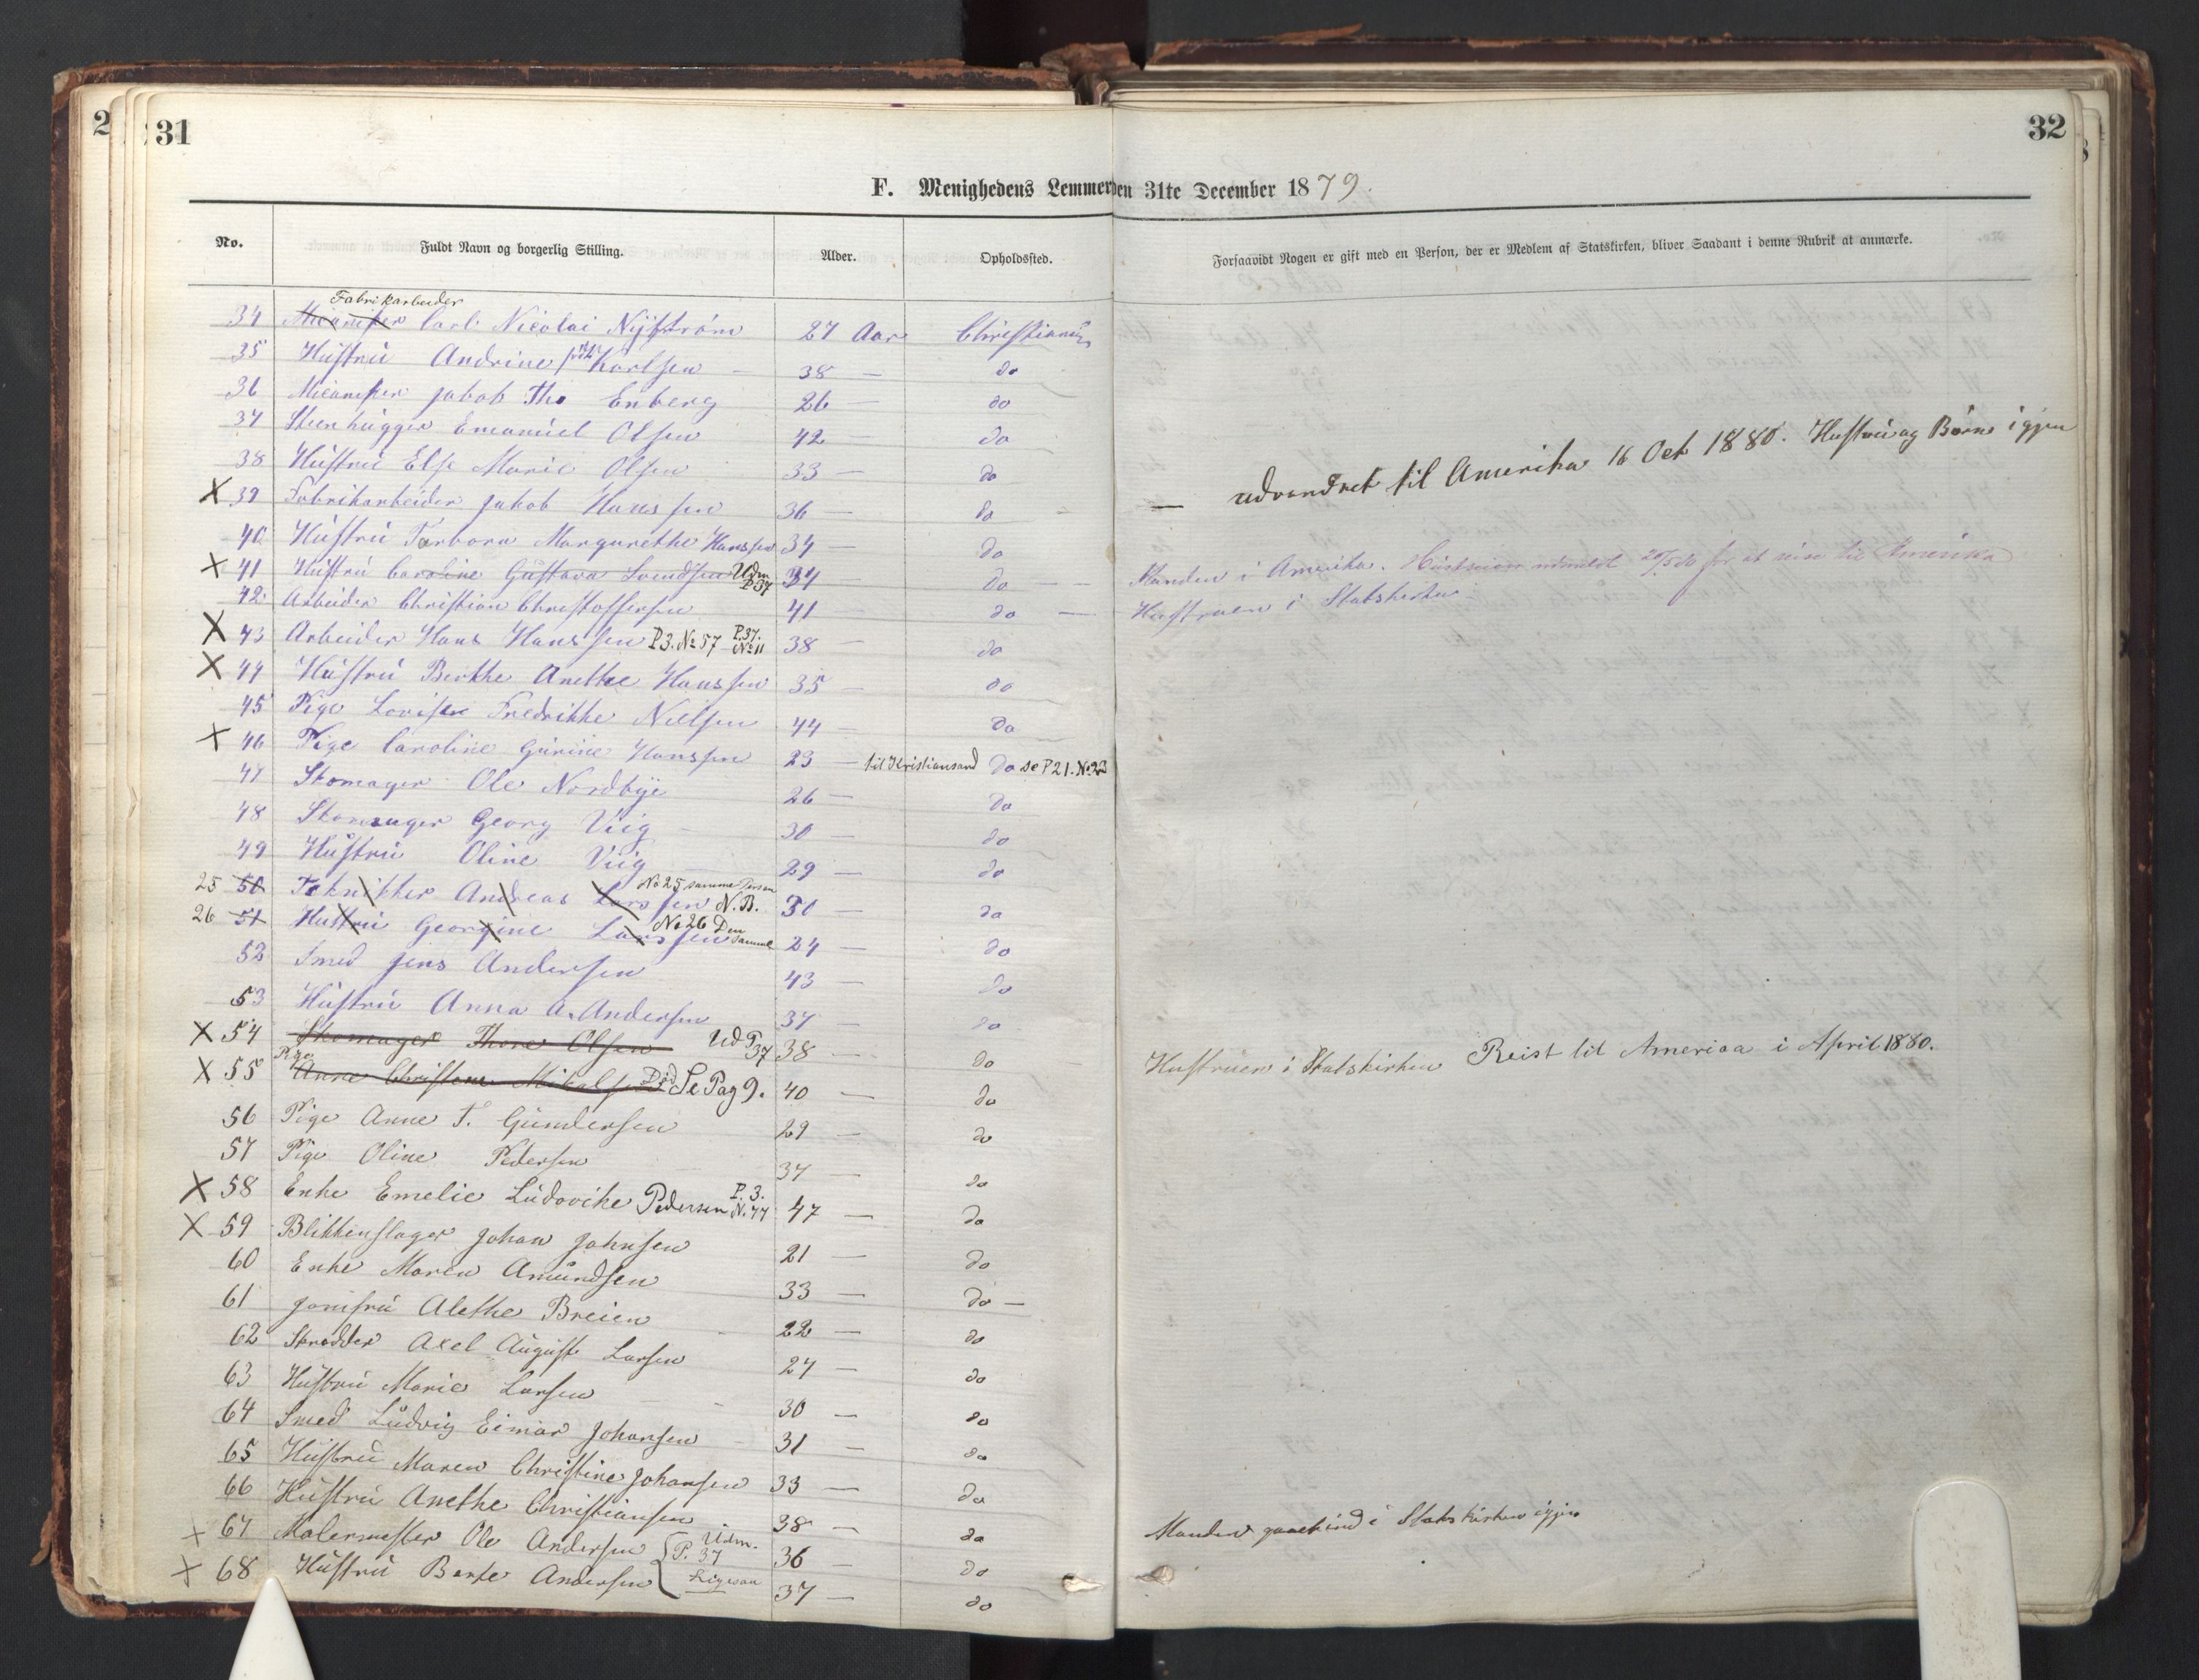 31
32
F. Menighedens Lemmer den 31te December 1879.
No. Fuldt Navn og borgerlig Stilling. Alder. Opholdssted. Forsaavidt Nogen er gift med en Person, der er Medlem af Statskirken, bliver Saadant i denne Rubrik at anmærke.
Fabrikarbeider
34 Mecaniker Carl Nicolai Nyström 27 Aar Christiania
35 Hustru Andrine Karlsen 38 — do
36 Mecaniker Jakob Th. Enberg 26 — do
37 Steenhugger Emanuel Olsen 42 — do
38 Hustru Else Marie Olsen 33 — do
X 39 Fabrikarbeider Jakob Hanssen 36 — do — udvandret til Amerika 16 Oct 1880. Hustru og Børn igjen
40 Hustru Barbara Margarethe Hanssen 34 — do
X 41 Hustru Caroline Gustava Svendsen Udm P37 34 do — — Manden i Amerika. Hustruen udmeldt 20/5 80 for at reise til Amerika
42 Arbeider Christian Christoffersen 41 — do — Hustruen i Statskirken.
X 43 Arbeider Hans Hanssen P3. No 57 P.37. No 11 38 — do
X 44 Hustru Berthe Anethe Hanssen 35 — do
45 Pige Lovise Fredrikke Nielsen 44 — do
X 46 Pige Caroline Gurine Hanssen 23 — til Kristiansand do se P 21. No 23
47 Skomager Ole Nordbye 26 — do
48 Skomager Georg Viig 30 — do
49 Hustru Oline Viig 29 — do
25 50 Tekniker Andreas Larssen No 25 samme Person N.B. 30 — do
26 51 Hustru Georgine Larssen No 26 Den samme 24 — do
52 Smed Jens Andersen 43 — do
53 Hustru Anna A. Andersen 37 — do
X 54 Skomager Thore Olsen Ud P 37 38 — do Hustruen i Statskirken Reist til America i April 1880.
X 55 Pige Anne Christene Mikalsen Død Se Pag 9. 40 — do
56 Pige Anne T. Gundersen 29 — do
57 Pige Oline Pedersen 37 — do
X 58 Enke Emelie Ludovike Pedersen P. 3. N. 77 47 — do
X 59 Blikkenslager Johan Johnsen 21 do
60 Enke Maren Amundsen 33 — do —
61 Jomfru Alethe Breien 22 — do
62 Skredder Axel August Larsen 27 — do
63 Hustru Marie Larsen 30 — do
64 Smed Ludvig Eimar Johansen 31 — do
65 Hustru Maren Christine Johansen 33 — do
66 Hustru Anethe Christiansen 38 — do Manden gaaet ind i Statskirken igjen
X 67 Malermester Ole Andersen P. 37 Udm. 36 — do
X 68 Hustru Berte Andersen Ligesaa 37 — do